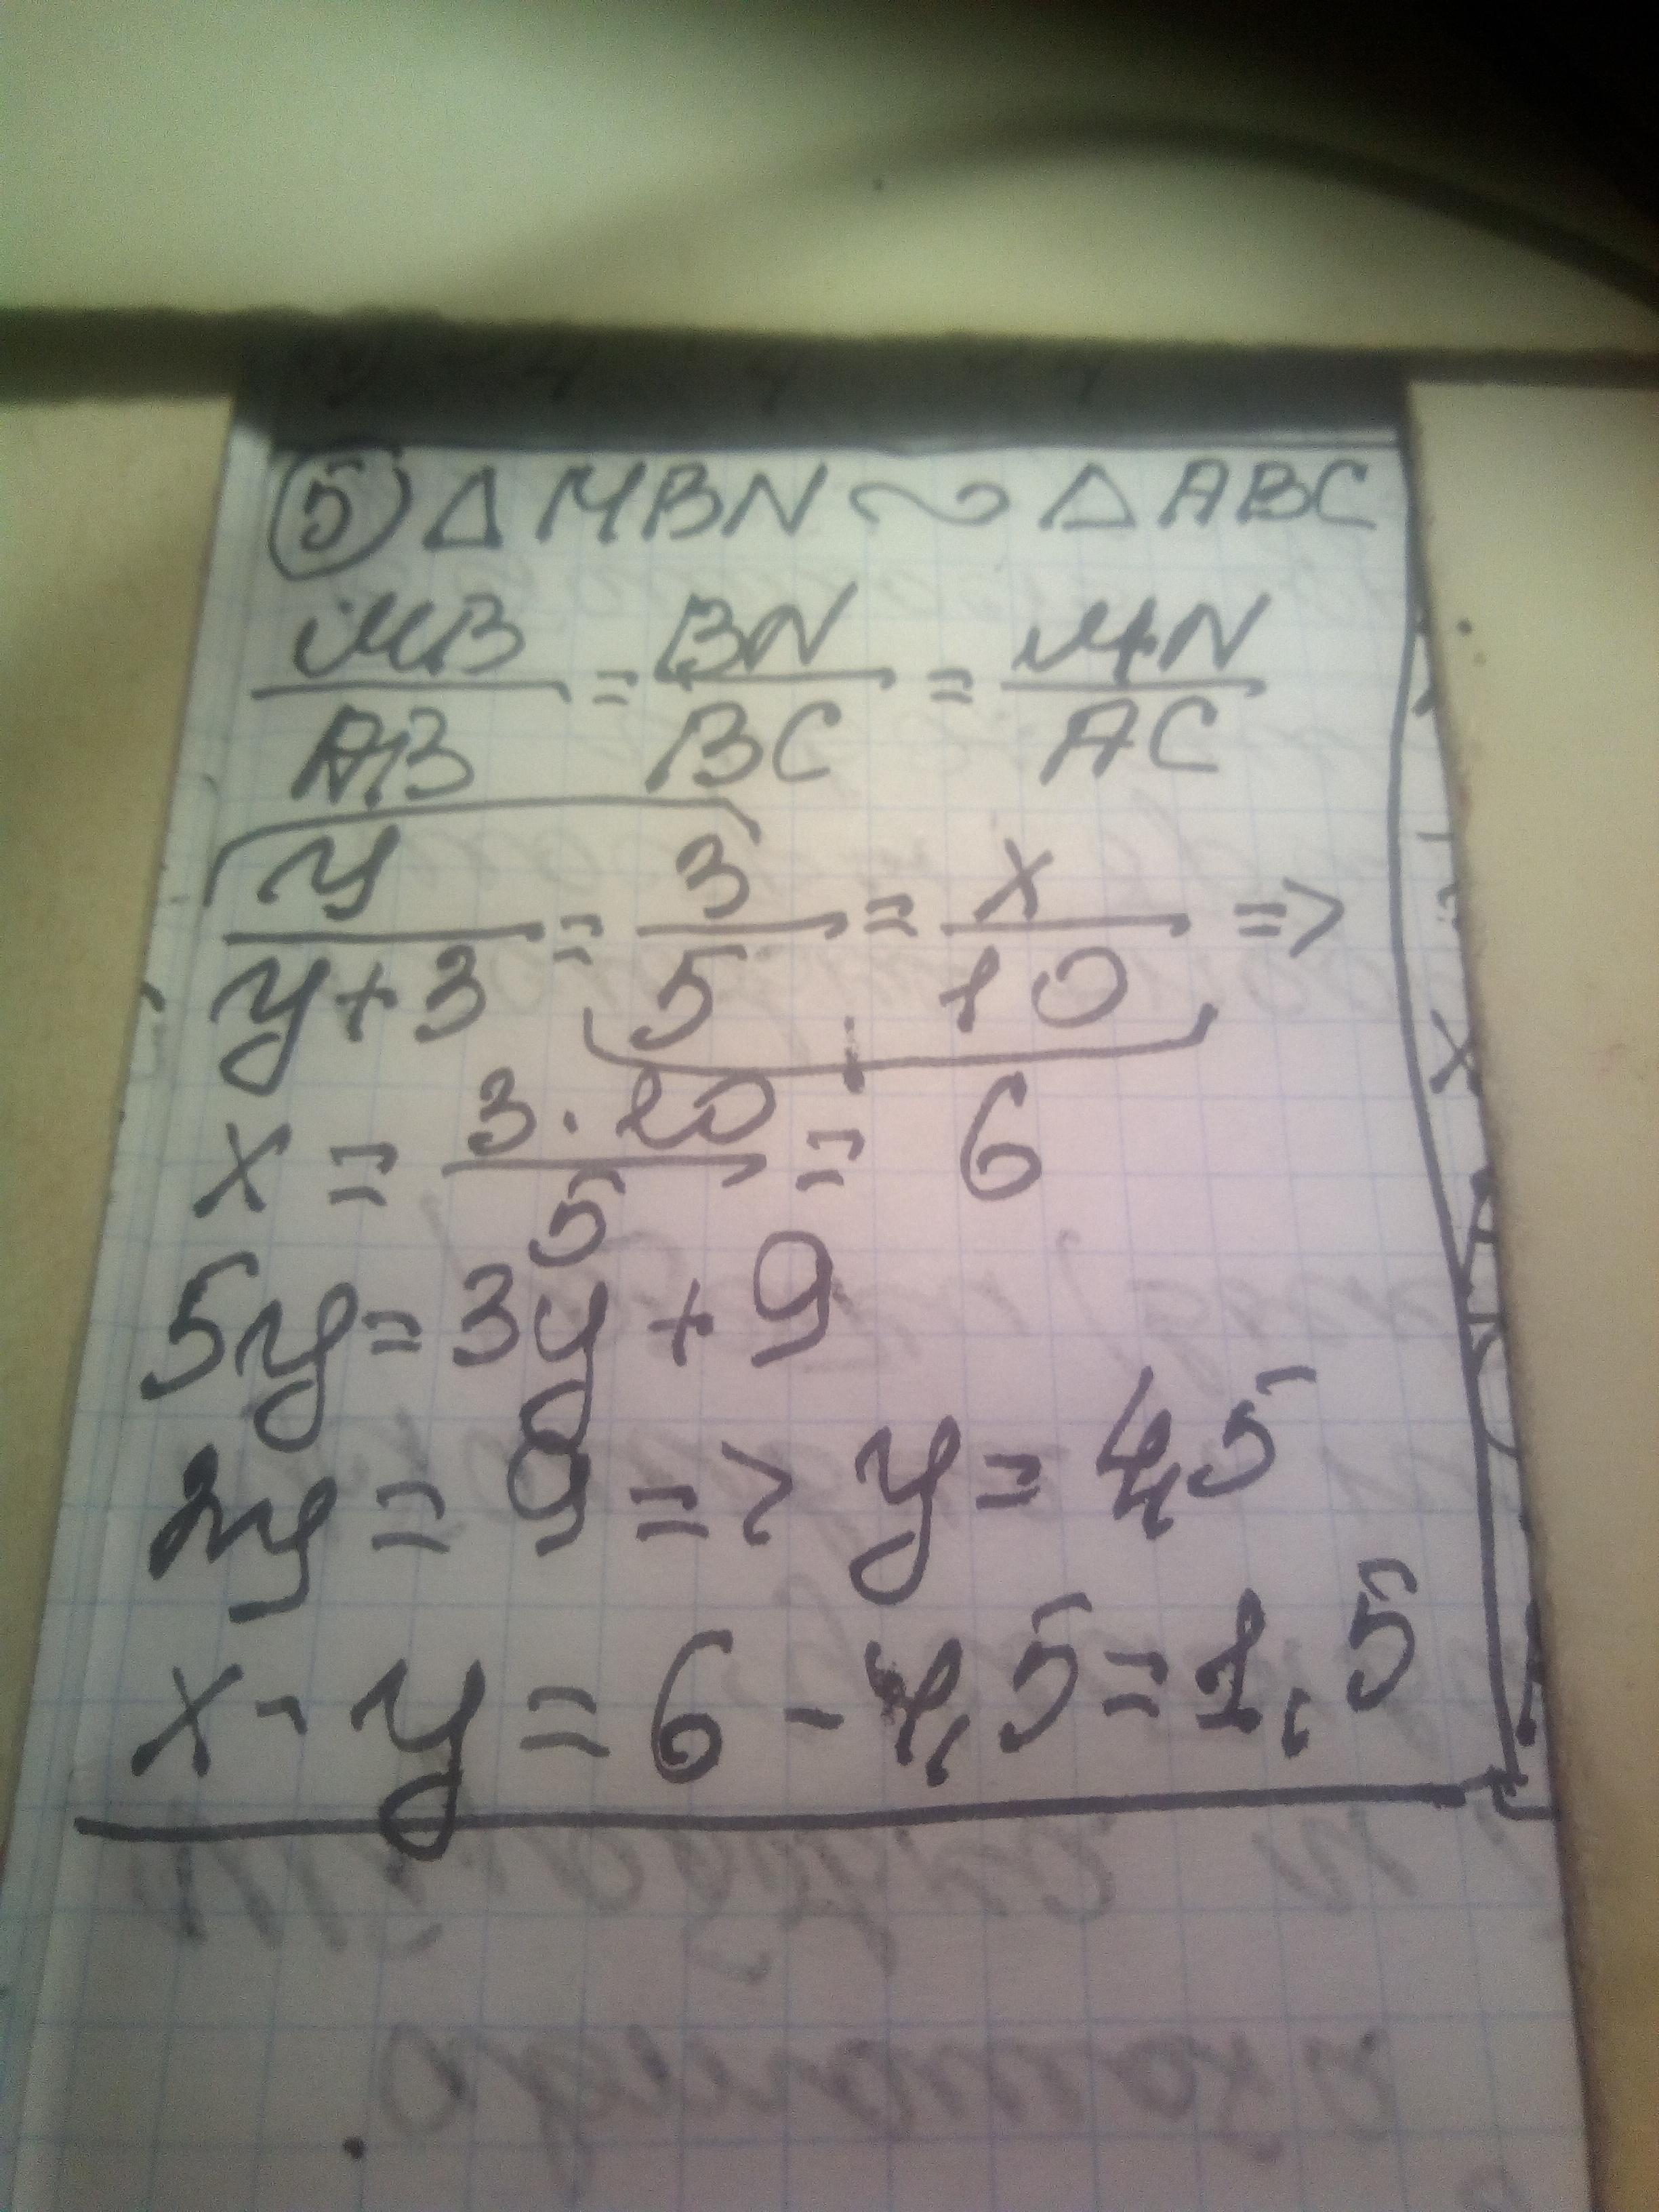 ⑤ Δ MBN ∾ Δ ABC
MB/AB = BN/BC = MN/AC
y/y+3 = 3/5 = x/10 =>
x = 3·10/5 = 6
5y = 3y + 9
2y = 9 => y = 4,5
x - y = 6 - 4,5 = 1,5